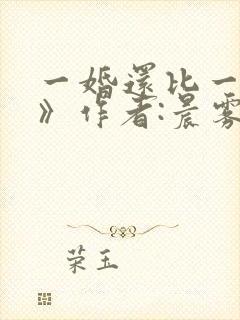 一婚还比一
》作者:晨雾
荣玉